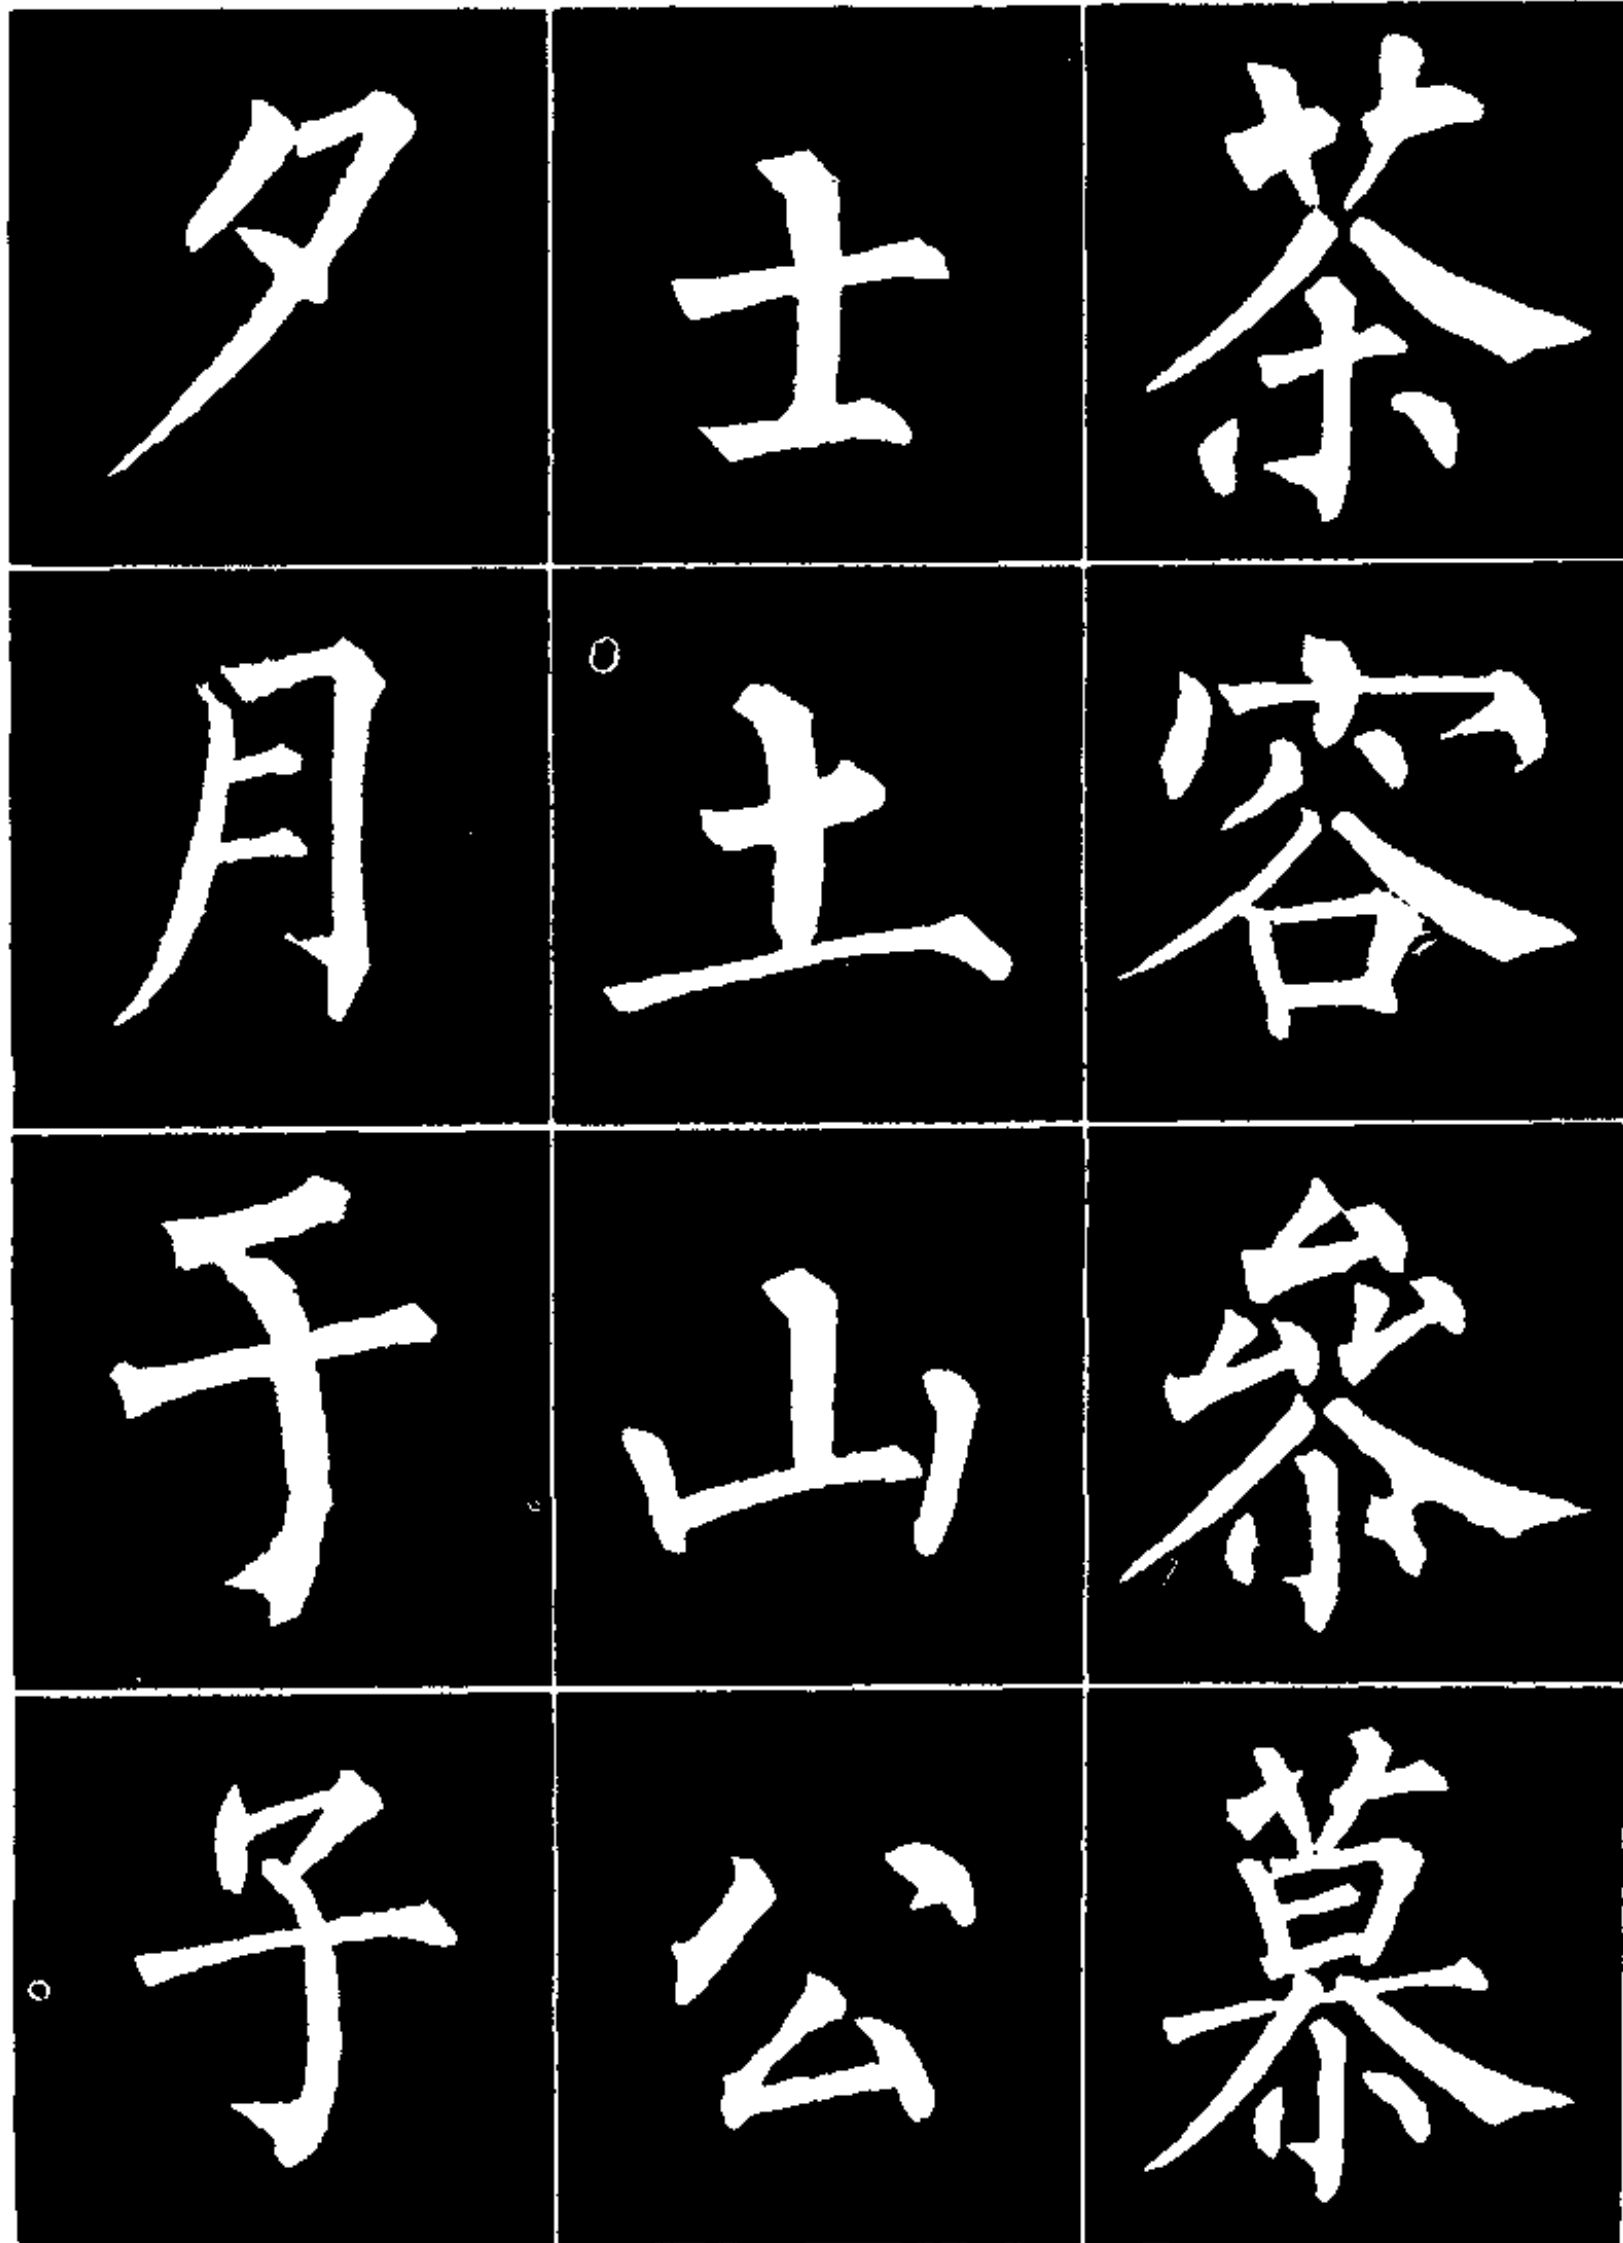 茶容叅慕
士土山公
夕月子子